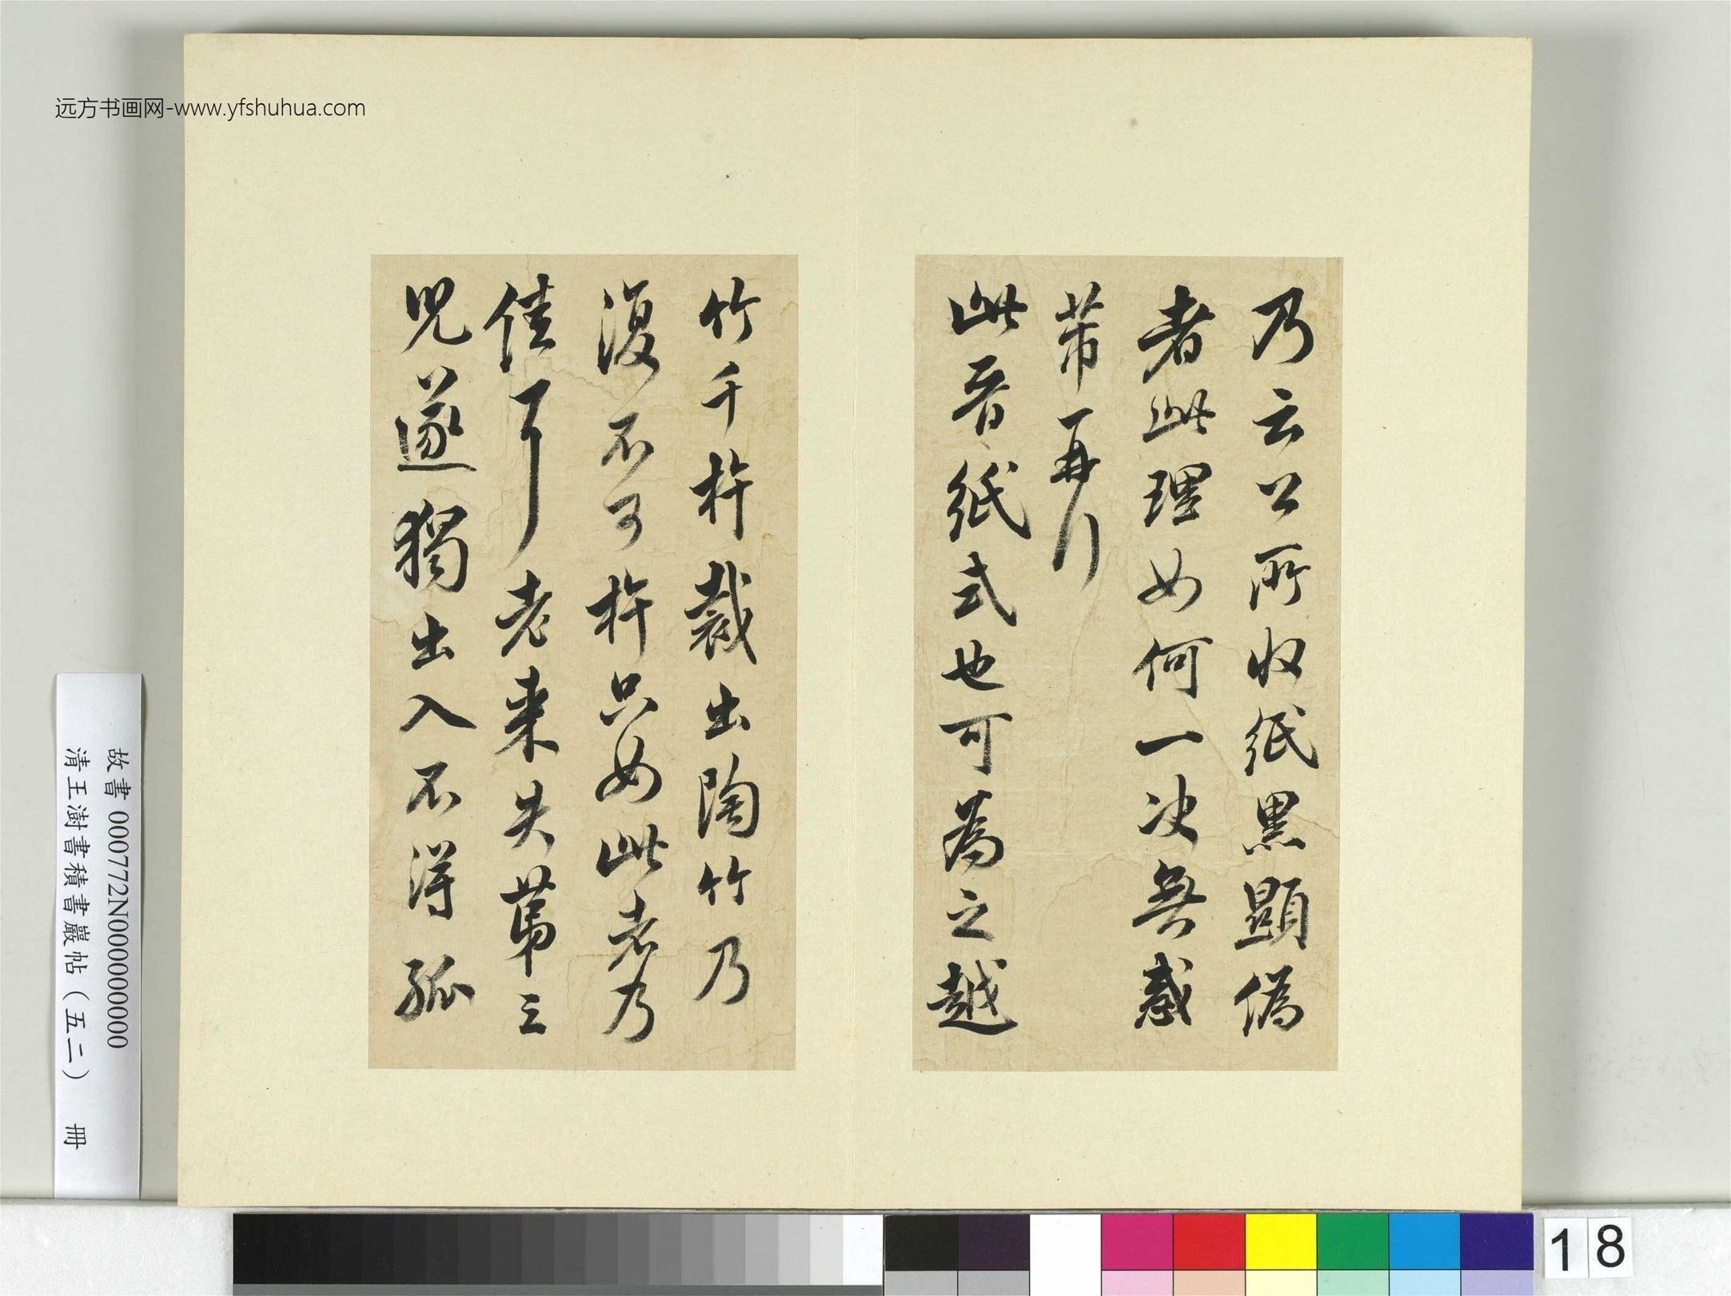 远方书画网-www.yfshuhua.com
乃云公所收紙黑顯偽
者此理如何一決無惑
芾再行
此晉紙式也可為之越
竹千杵裁出陶竹乃
復不可杵只如此者乃
佳耳老来失第三
兒遂獨出入不得孤
故書 000772N000000000
清王澍書積書巖帖（五二） 冊
18